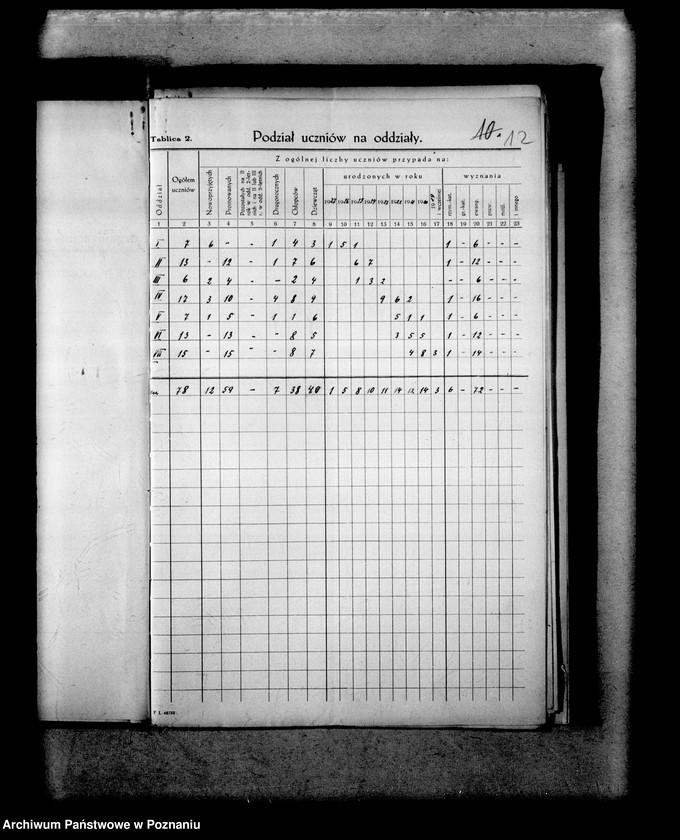 10. 12
Tablica 2. Podział uczniów na oddziały.
Oddział
Ogółem uczniów
Z ogólnej liczby uczniów przypada na:
Nowoprzyjętych
Promowanych
Drugorocznych
Chłopców
Dziewcząt
urodzonych w roku
i wcześniej
wyznania
rzym.-kat.
gr.-kat.
ewang.
praw.
mojż.
i innego
1 2 3 4 5 6 7 8 9 10 11 12 13 14 15 16 17 18 19 20 21 22 23
I 7 6 - - 1 4 3 1 5 1 1 - 6 - - -
II 13 - 12 - 1 7 6 6 7 1 - 12 - - -
III 6 2 4 - - 2 4 1 3 2 - - 6 - - -
IV 17 3 10 - 4 8 9 9 6 2 1 - 16 - - -
V 7 1 5 - 1 1 6 5 1 1 1 - 6 - - -
VI 13 - 13 - - 8 5 3 5 5 1 - 12 - - -
VII 15 - 15 - - 8 7 4 8 3 1 - 14 - - -
78 12 59 - 7 38 40 1 5 8 10 11 14 12 14 3 6 - 72 - - -
Archiwum Państwowe w Poznaniu